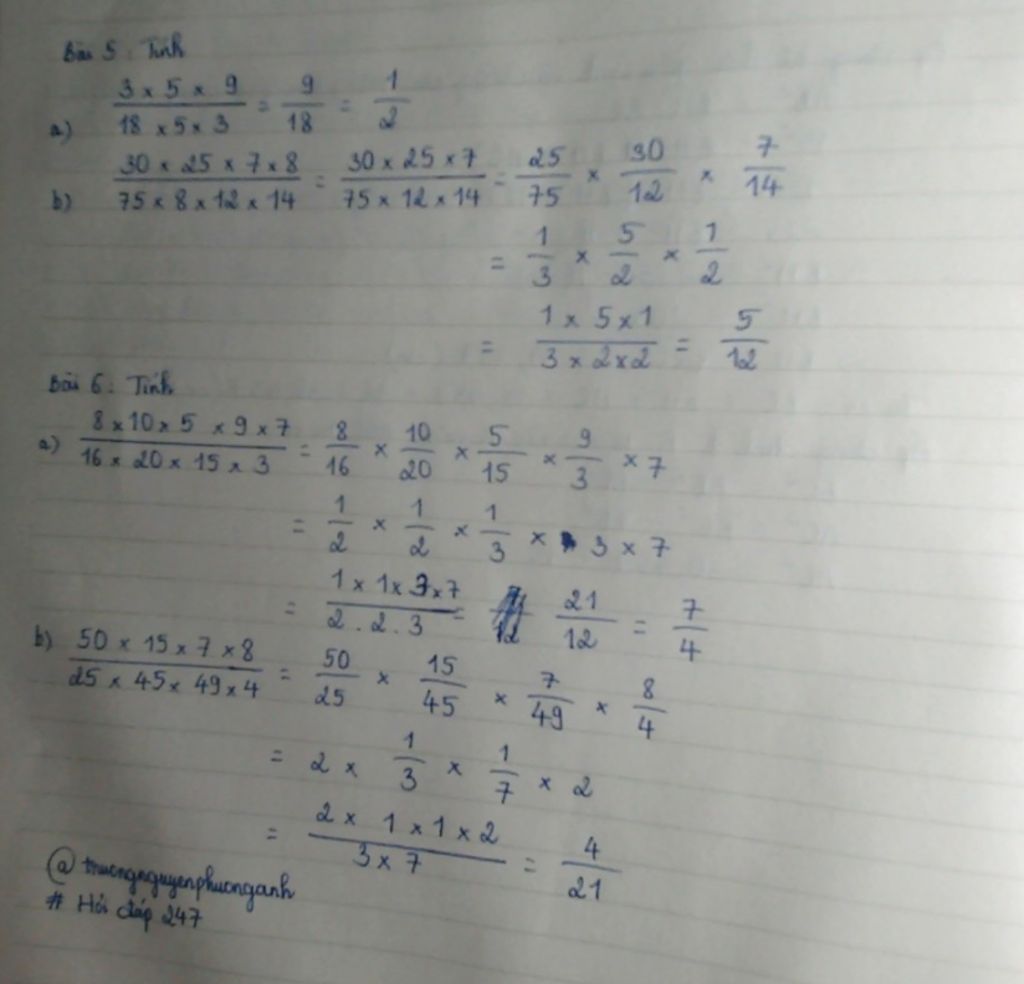 Bài 5 : Tính
a) \frac{3 × 5 × 9}{18 × 5 × 3} = \frac{9}{18} = \frac{1}{2}
b) \frac{30 × 25 × 7 × 8}{75 × 8 × 12 × 14} = \frac{30 × 25 × 7}{75 × 12 × 14} = \frac{25}{75} × \frac{30}{12} × \frac{7}{14}
= \frac{1}{3} × \frac{5}{2} × \frac{1}{2}
= \frac{1 × 5 × 1}{3 × 2 × 2} = \frac{5}{12}
Bài 6 : Tính
a) \frac{8 × 10 × 5 × 9 × 7}{16 × 20 × 15 × 3} = \frac{8}{16} × \frac{10}{20} × \frac{5}{15} × \frac{9}{3} × 7
= \frac{1}{2} × \frac{1}{2} × \frac{1}{3} × 3 × 7
= \frac{1 × 1 × 3 × 7}{2 . 2 . 3} = \frac{21}{12} = \frac{7}{4}
b) \frac{50 × 15 × 7 × 8}{25 × 45 × 49 × 4} = \frac{50}{25} × \frac{15}{45} × \frac{7}{49} × \frac{8}{4}
= 2 × \frac{1}{3} × \frac{1}{7} × 2
= \frac{2 × 1 × 1 × 2}{3 × 7} = \frac{4}{21}
@ truongnguyenphuonganh
# Hỏi đáp 247